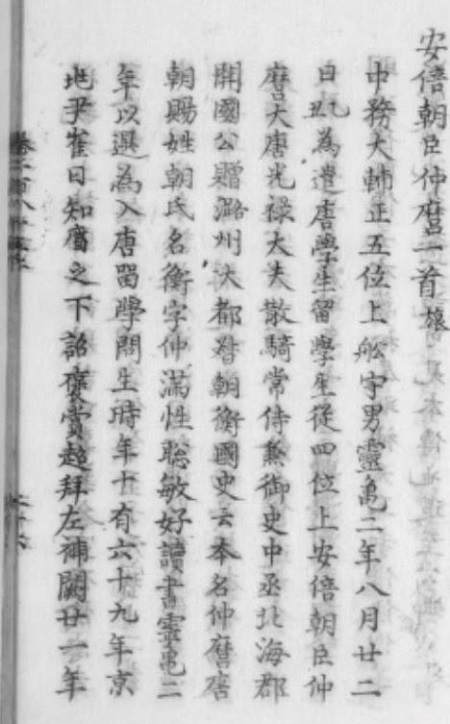 安倍朝臣仲麿一首
中務大輔正五位上船守男靈亀二年八月廿二
日為遣唐學生留學生從四位上安倍朝臣仲
麿大唐光禄大夫散騎常侍兼御史中丞北海郡
開國公贈潞州大都督朝衡國史云本名仲麿唐
朝賜姓朝氏名衡字仲満性聡敏好讀書靈亀二
年以選為入唐留學問生時年十有六十九年京
地尹崔日知薦之下詔褒賞超拜左補闕廿一年